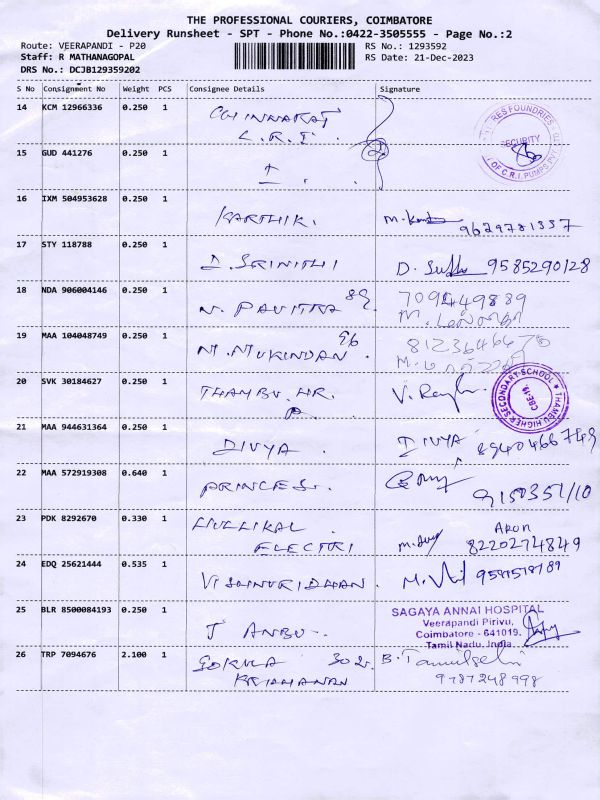 THE PROFESSIONAL COURIERS, COIMBATORE
Delivery Runsheet - SPT - Phone No.:0422-3505555 - Page No.:2
Route: VEERAPANDI - P20
Staff: R MATHANAGOPAL
DRS No.: DCJB129359202
RS No.: 1293592
RS Date: 21-Dec-2023
S No Consignment No Weight PCS Consignee Details Signature
14 KCM 12966336 0.250 1 CHINNAKAT
L.R.I.
SECURITY
15 GUD 441276 0.250 1
16 IXM 504953628 0.250 1 KARTHIK.
9629781337
17 STY 118788 0.250 1 D. SRINITHI 9585290128
18 NDA 906004146 0.250 1 N. PAVITRA 89
7094449889
19 MAA 104048749 0.250 1 M. MUKINDAN 96
8123646676
20 SVK 30184627 0.250 1 THAMBU.HR.
THAMBU HIGHER SECONDARY SCHOOL
CBE-19.
21 MAA 944631364 0.250 1 DIVYA. DIVYA 8940466749
22 MAA 572919308 0.640 1 PRINCES.
9150351/10
23 PDK 8292670 0.330 1 MULLIKAL
ELECTRI
Arun
8220274849
24 EDQ 25621444 0.535 1 VISHNURIDHAN.
25 BLR 8500084193 0.250 1 J ANBU
SAGAYA ANNAI HOSPITAL
Veerapandi Pirivu,
Coimbatore - 641019,
Tamil Nadu, India.
26 TRP 7094676 2.100 1 GOKULA 302. B. Tamilselvi
KRISHANAN 9787248998